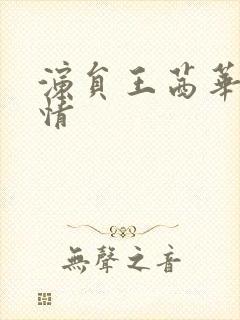 演員王茜華
情
無聲之音